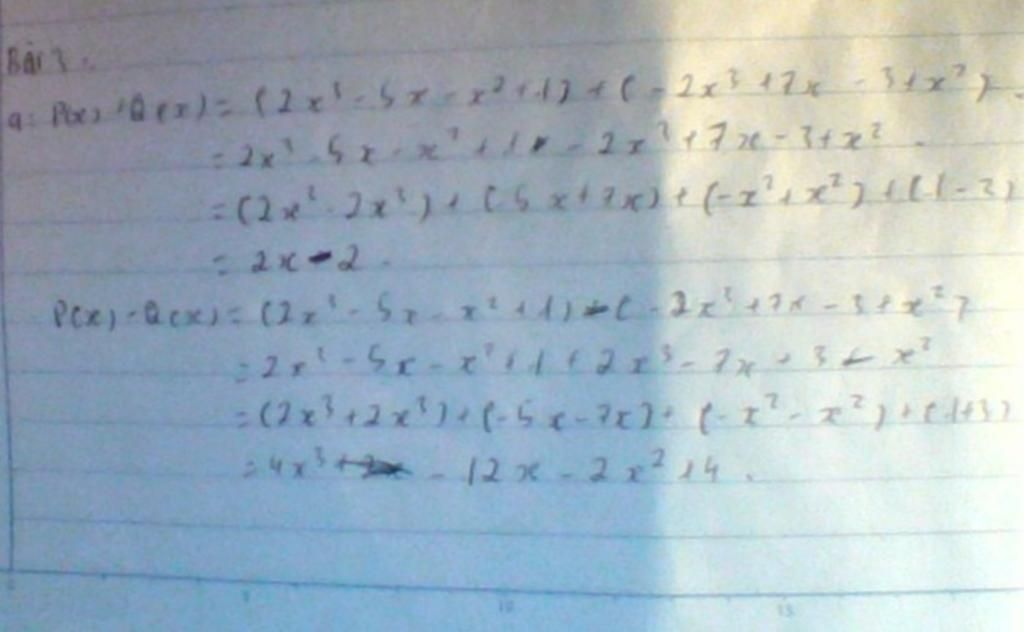 Bài 3.
a: P(x) + Q(x) = (2x³ - 5x - x² + 1) + (-2x³ + 7x - 3 + x²)
= 2x³ - 5x - x² + 1 - 2x³ + 7x - 3 + x².
= (2x³ - 2x³) + (-5x + 7x) + (-x² + x²) + (1 - 3)
= 2x - 2.
P(x) - Q(x) = (2x³ - 5x - x² + 1) - (-2x³ + 7x - 3 + x²)
= 2x³ - 5x - x² + 1 + 2x³ - 7x + 3 - x²
= (2x³ + 2x³) + (-5x - 7x) + (-x² - x²) + (1+3)
= 4x³ - 12x - 2x² + 4.
5 10 15